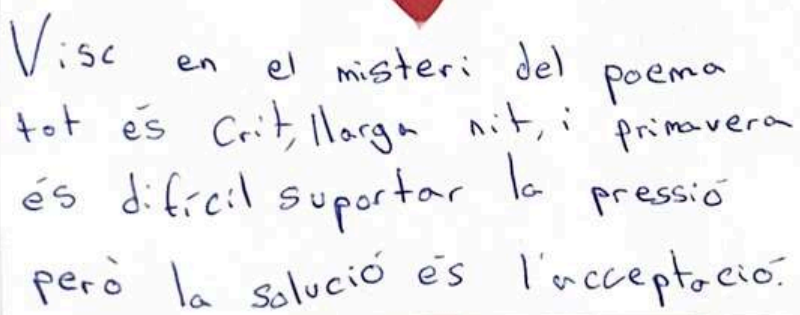 Visc en el misteri del poema
tot és Crit, llarga nit, i primavera
és difícil suportar la pressió
però la solució és l'acceptació.